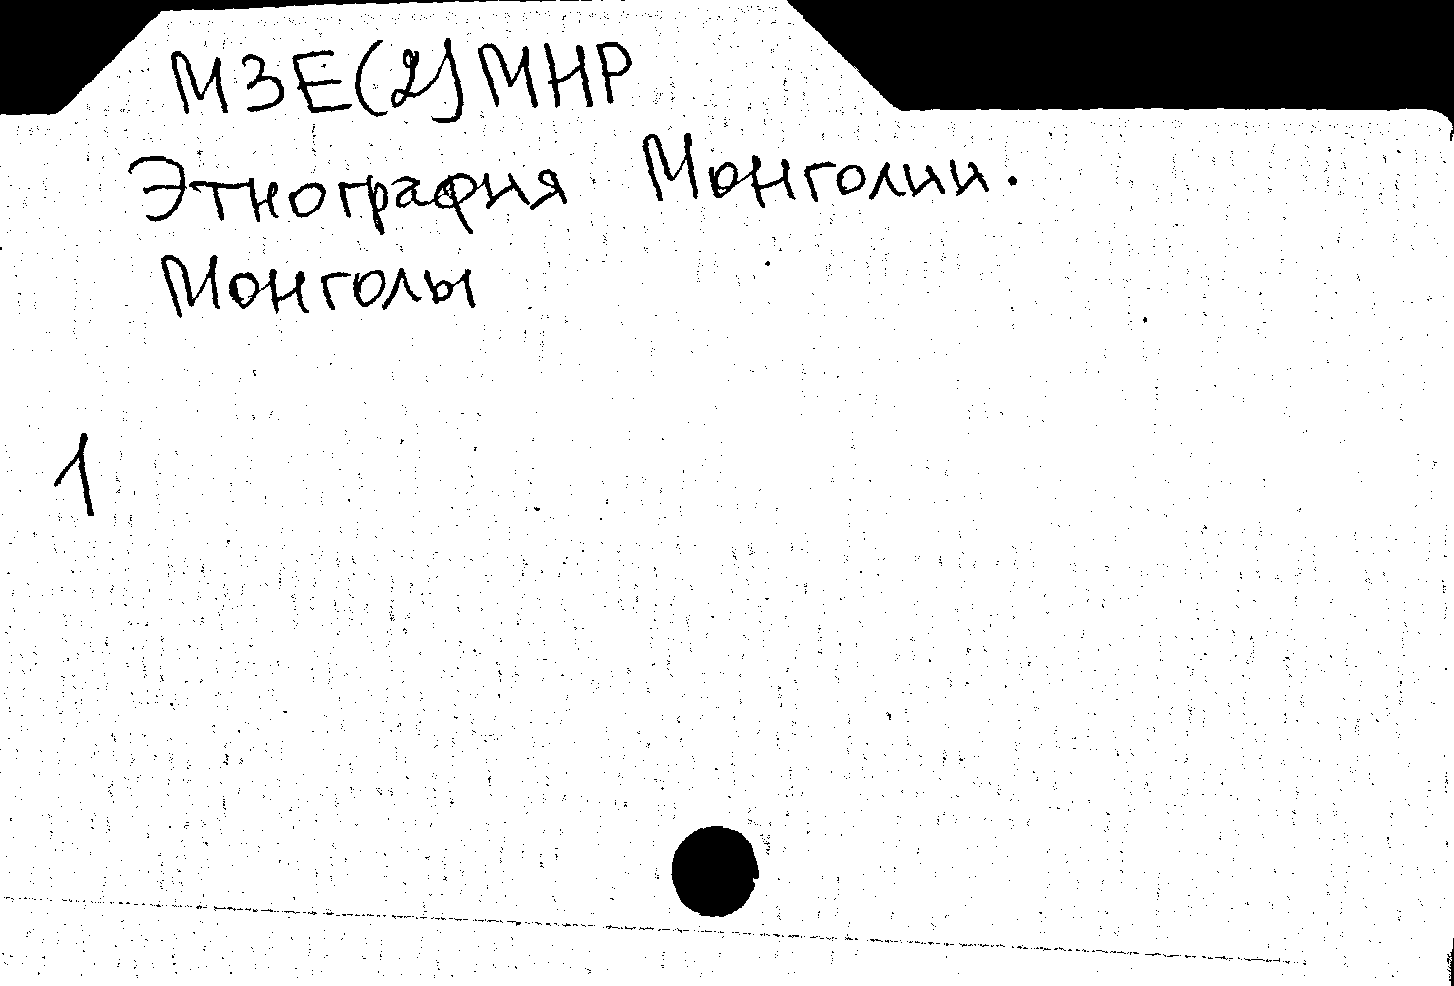 МЗЕ(2)МНР
Этнография Монголии.
Монголы
1